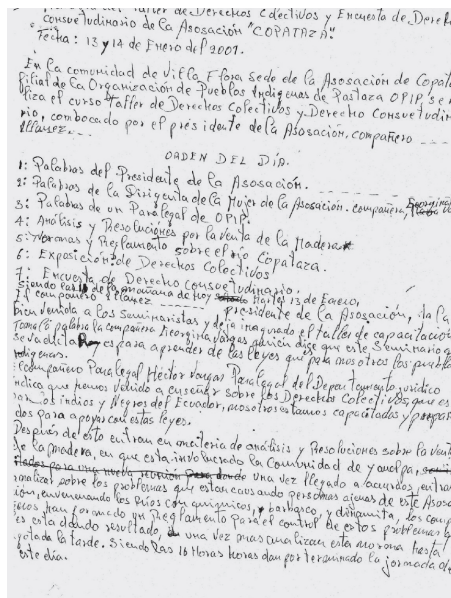 del Taller de Derechos Colectivos y Encuesta de Derec
consuetudinario de la Asosación "COPATAZA".
Fecha: 13 y 14 de Enero del 2001.
En la comunidad de Villa Flora sede de la Asosación de Copata
filial de la Organización de Pueblos Indígenas de Pastaza OPIP, se r
liza el curso Taller de Derechos Colectivos y Derecho Consuetudin
rio, combocado por el présidente de la Asosación, compañero
Illanez
ORDEN DEL DÍA.
1: Palabras del Presidente de la Asosación.
2: Palabras de la Dirigenta de la Mujer de la Asosación. compañera, Georgina
3: Palabras de un Paralegal de OPIP.
4: Análisis y Resoluciones por la venta de la Madera
5: Normas y Reglamento sobre el río Copataza.
6: Exposición de Derechos Colectivos
7: Encuesta de Derecho consuetudinario.
Siendo las 10 de la mañana de hoy Martes 13 de Enero,
El compañero Illanez presidente de la Asosación, da la
bienvenida a los Seminaristas y deja inaugurado el taller de capacitación
Toma la palabra la compañera Georgina Vargas quien dice que este Seminario q
se va dictar es para aprender de las leyes que para nosotros los pueblos
indígenas.
compañero Paralegal Héctor Vargas Paralegal del Departamento jurídico
indica que hemos venido a enseñar sobre los Derechos Colectivos, que es
los indios y Negros del Ecuador, nosotros estamos capacitados y prepara
dos para apoyar con estas leyes.
Después de esto entran en materia de análisis y Resoluciones sobre la venta
de la madera, en que esta involucrado la Comunidad de yanalpa,
una vez llegado a acuerdos, entran
analizar sobre los problemas que estan causando personas ajenas de este Asosa
ción, envenenando los Ríos con químicos, y barbasco, y dinamita, los comp
han formado un Reglamento para el control de estos problemas
es esta dando resultado, una vez mas analizan esta morona hasta
la tarde. Siendo las 16 Horas horas dan por terminado la jornada de
este día.